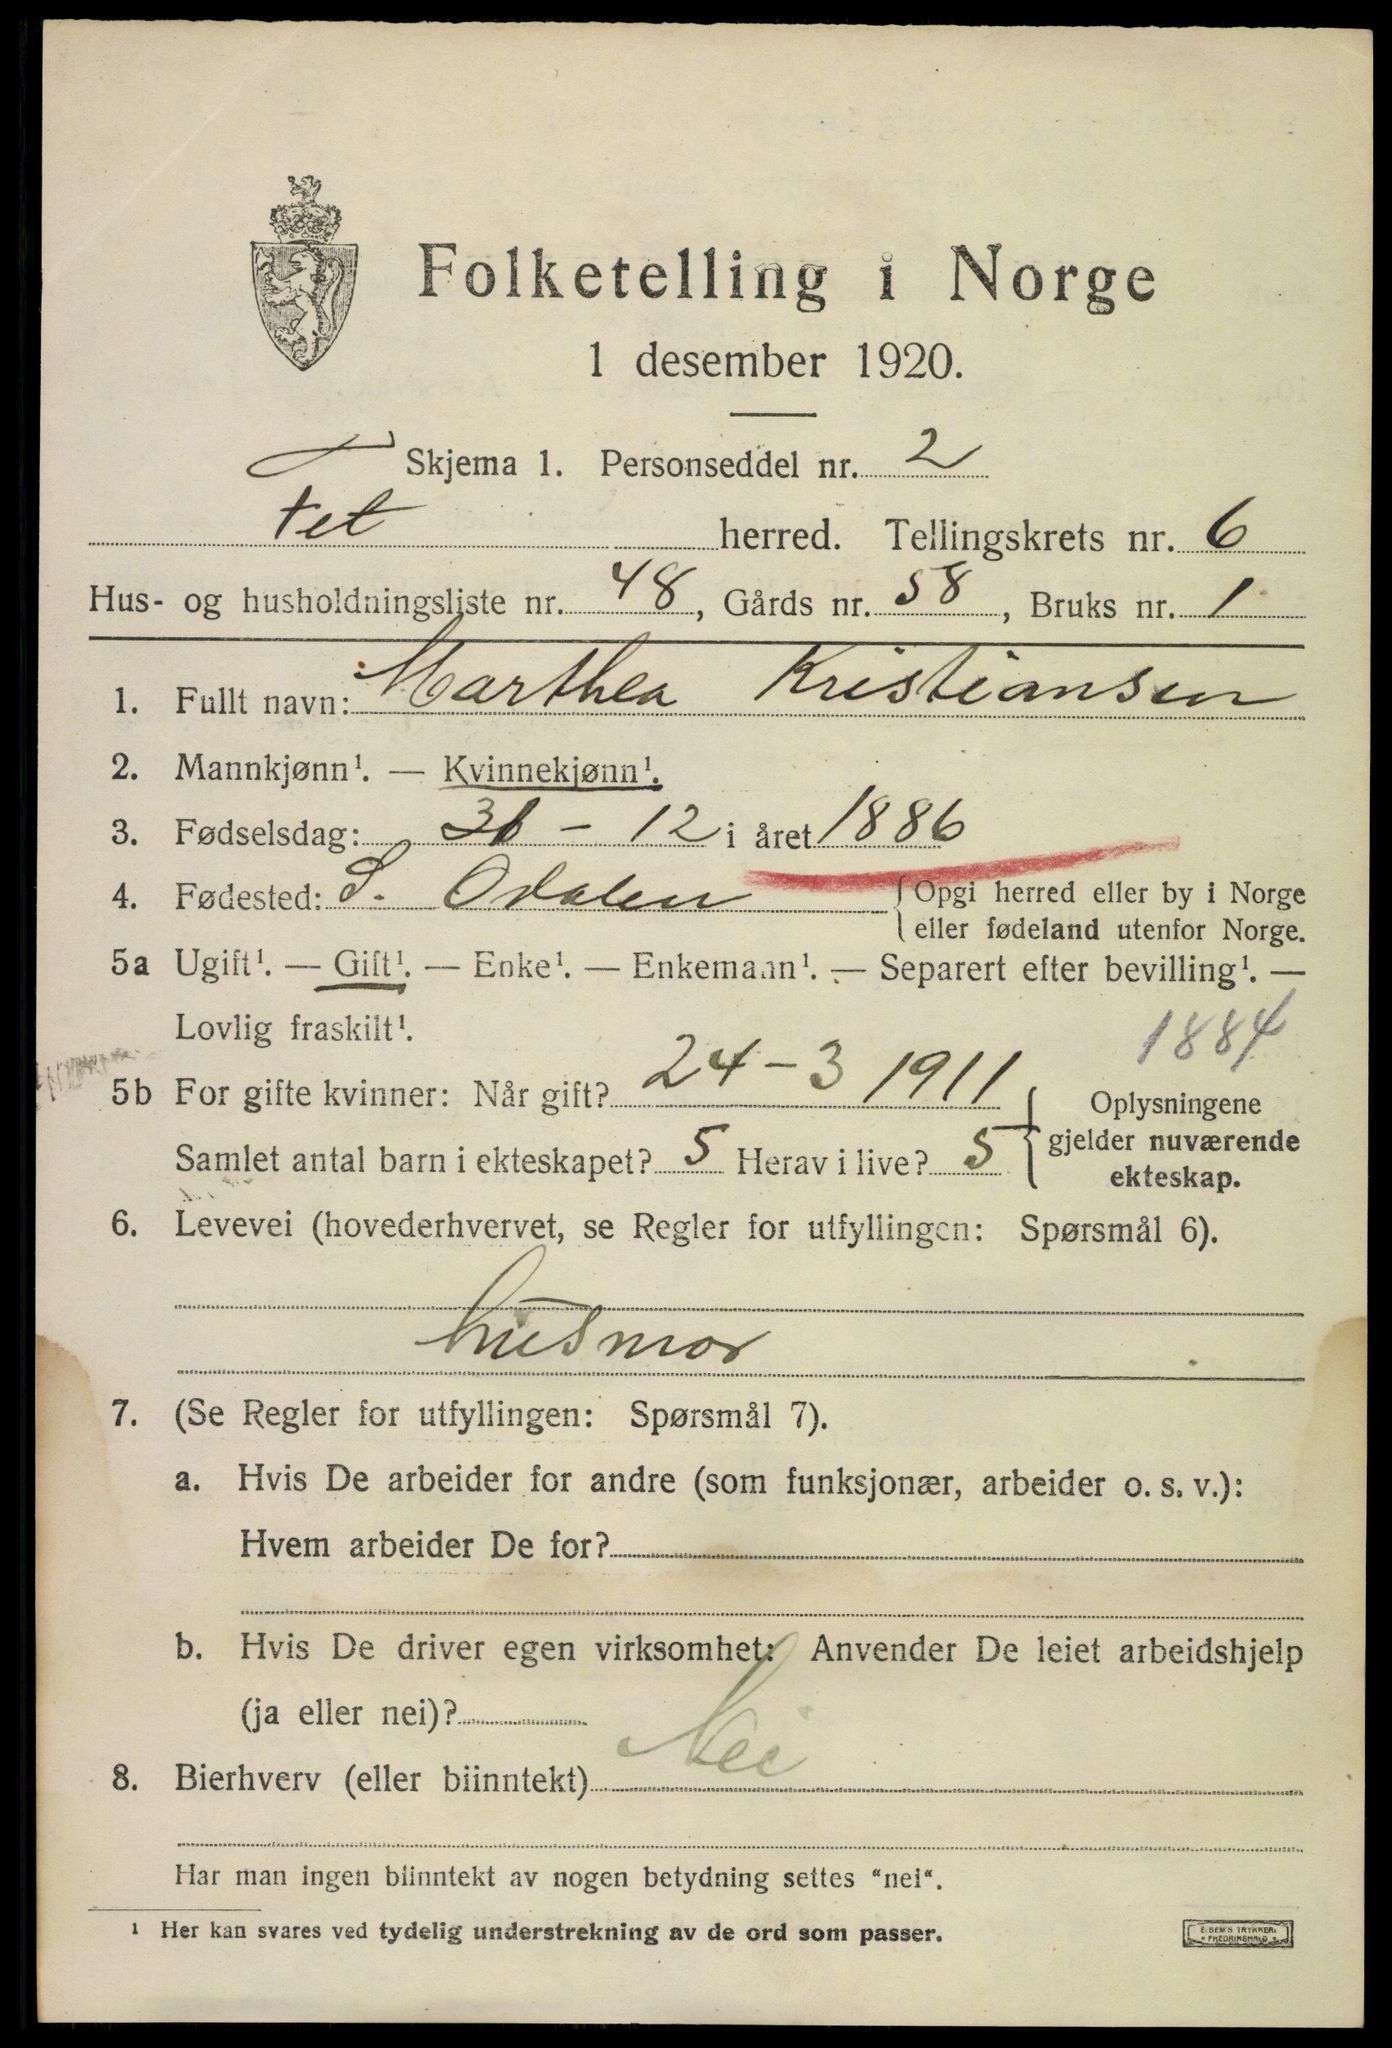 Folketelling i Norge
1 desember 1920.
Skjema 1. Personseddel nr. 2
Fet herred. Tellingskrets nr. 6
Hus- og husholdningsliste nr. 48, Gårds nr. 58, Bruks nr. 1
1. Fullt navn: Marthea Kristiansen
2. Mannkjønn¹. — Kvinnekjønn¹.
3. Fødselsdag: 31 - 12 i året 1886
4. Fødested: S. Odalen {Opgi herred eller by i Norge
eller fødeland utenfor Norge.
5a Ugift¹. — Gift¹. — Enke¹. — Enkemann¹. — Separert efter bevilling¹. —
Lovlig fraskilt¹.
1884
5b For gifte kvinner: Når gift? 24 - 3 1911
Samlet antal barn i ekteskapet? 5 Herav i live? 5
Oplysningene
gjelder nuværende
ekteskap.
6. Levevei (hovederhvervet, se Regler for utfyllingen: Spørsmål 6).
husmor
7. (Se Regler for utfyllingen: Spørsmål 7).
a. Hvis De arbeider for andre (som funksjonær, arbeider o. s. v.):
Hvem arbeider De for?
b. Hvis De driver egen virksomhet: Anvender De leiet arbeidshjelp
(ja eller nei)?
8. Bierhverv (eller biinntekt) Nei
Har man ingen biinntekt av nogen betydning settes "nei".
¹ Her kan svares ved tydelig understrekning av de ord som passer.
E. SEM'S TRYKKERI
FREDRIKSHALD